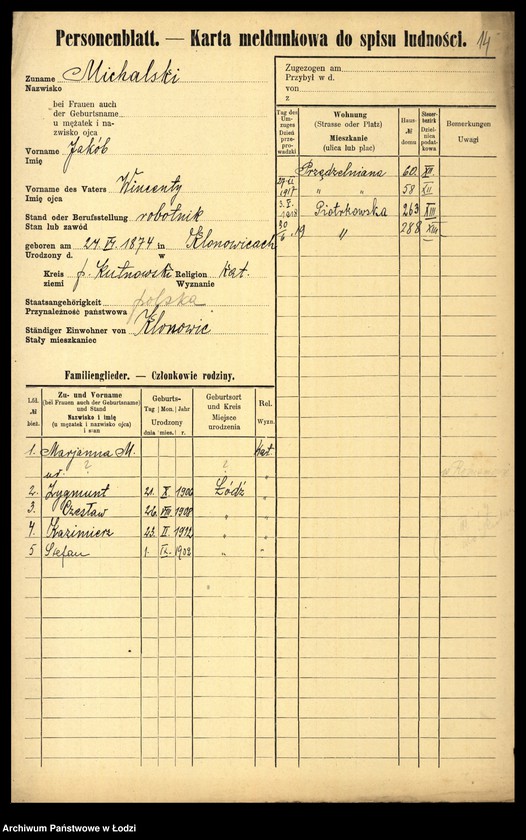 Personenblatt. — Karta meldunkowa do spisu ludności. 14
Zuname Michalski
Nazwisko
bei Frauen auch
der Geburtsname
u mężatek i na-
zwisko ojca
Vorname Jakób
Imię
Vorname des Vaters Wincenty
Imię ojca
Stand oder Berufsstellung robotnik
Stan lub zawód
geboren am 24. IV. 1874 in Klonowicach
Urodzony d. w
Kreis p. Kutnowski Religion kat.
ziemi Wyznanie
Staatsangehörigkeit polska
Przynależność państwowa
Ständiger Einwohner von Klonowic
Stały mieszkaniec
Zugezogen am
Przybył w d.
von
z
Tag des Um-zuges Dzień prze-prowadzki
Wohnung (Strasse oder Platz) Mieszkanie (ulica lub plac)
Haus- № domu
Steuer-bezirk Dziel-nica podat-kowa
Bemerkungen Uwagi
Przędzelniana 60 XII.
1917 " " 58 XII
3. X. 1918 Piotrkowska 263 XIII
30 6. 19 " 288 XIII
Familienglieder. — Członkowie rodziny.
Lfd. № bież.
Zu- und Vorname (bei Frauen auch der Geburtsname) und Stand Nazwisko i imię (u mężatek i nazwisko ojca) i stan
Geburts- Tag Mon. Jahr Urodzony dnia mies. r.
Geburtsort und Kreis Miejsce urodzenia
Rel. Wyzn.
1. Marjanna M. kat.
ur. ? ? "
2. Zygmunt 21. X. 1906 Łódź "
3. Czesław 26. VIII 1908 " "
4. Kazimierz 23. II. 1912 " "
5 Stefan 1. IX. 1902 " "
Archiwum Państwowe w Łodzi